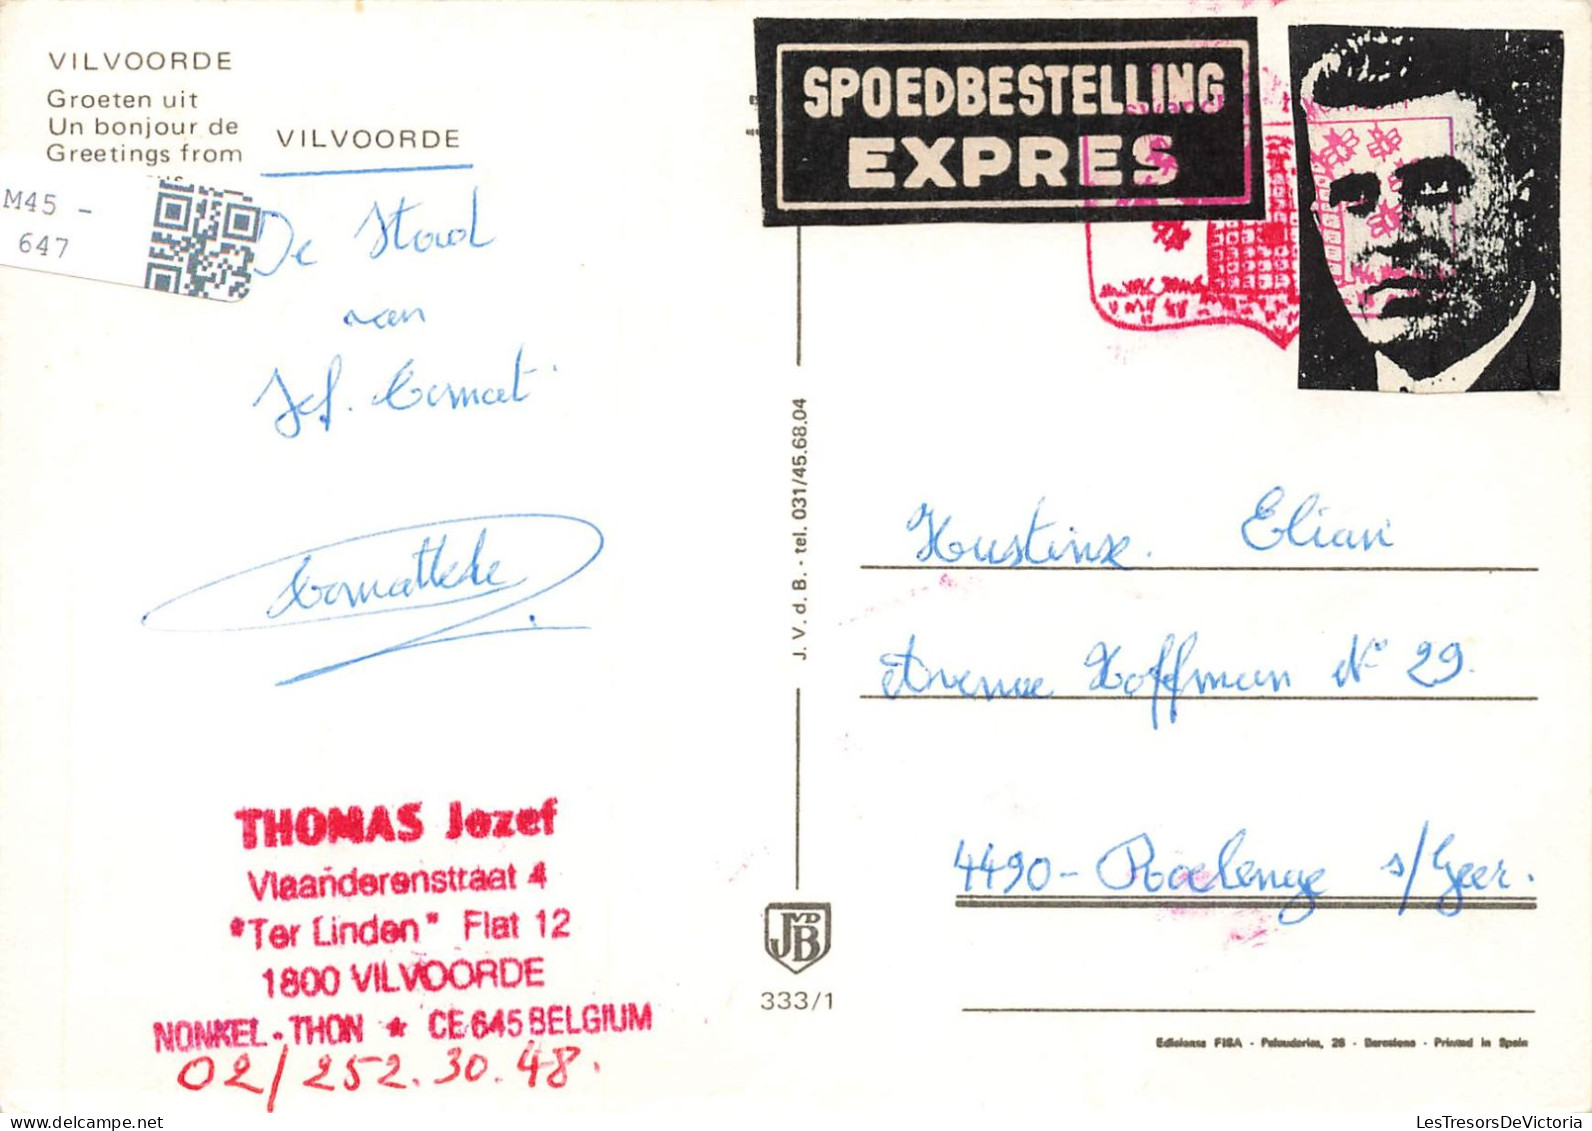 VILVOORDE
Groeten uit
Un bonjour de
Greetings from
VILVOORDE
M45 -
647
De Stad
van
Jef.
SPOEDBESTELLING
EXPRES
J. V. d. B. - tel. 031/45.68.04
Hustinx. Elian
Avenue Hoffman N° 29.
4490 - Roclenge s/Geer.
THOMAS Jozef
Vlaanderensttaat 4
"Ter Linden" Flat 12
1800 VILVOORDE
NONKEL-THON * CE 645 BELGIUM
02/252.30.48.
JVDB
333/1
Ediciones FISA - Palaudarias, 26 - Barcelona - Printed in Spain
LesTresorsDeVictoria